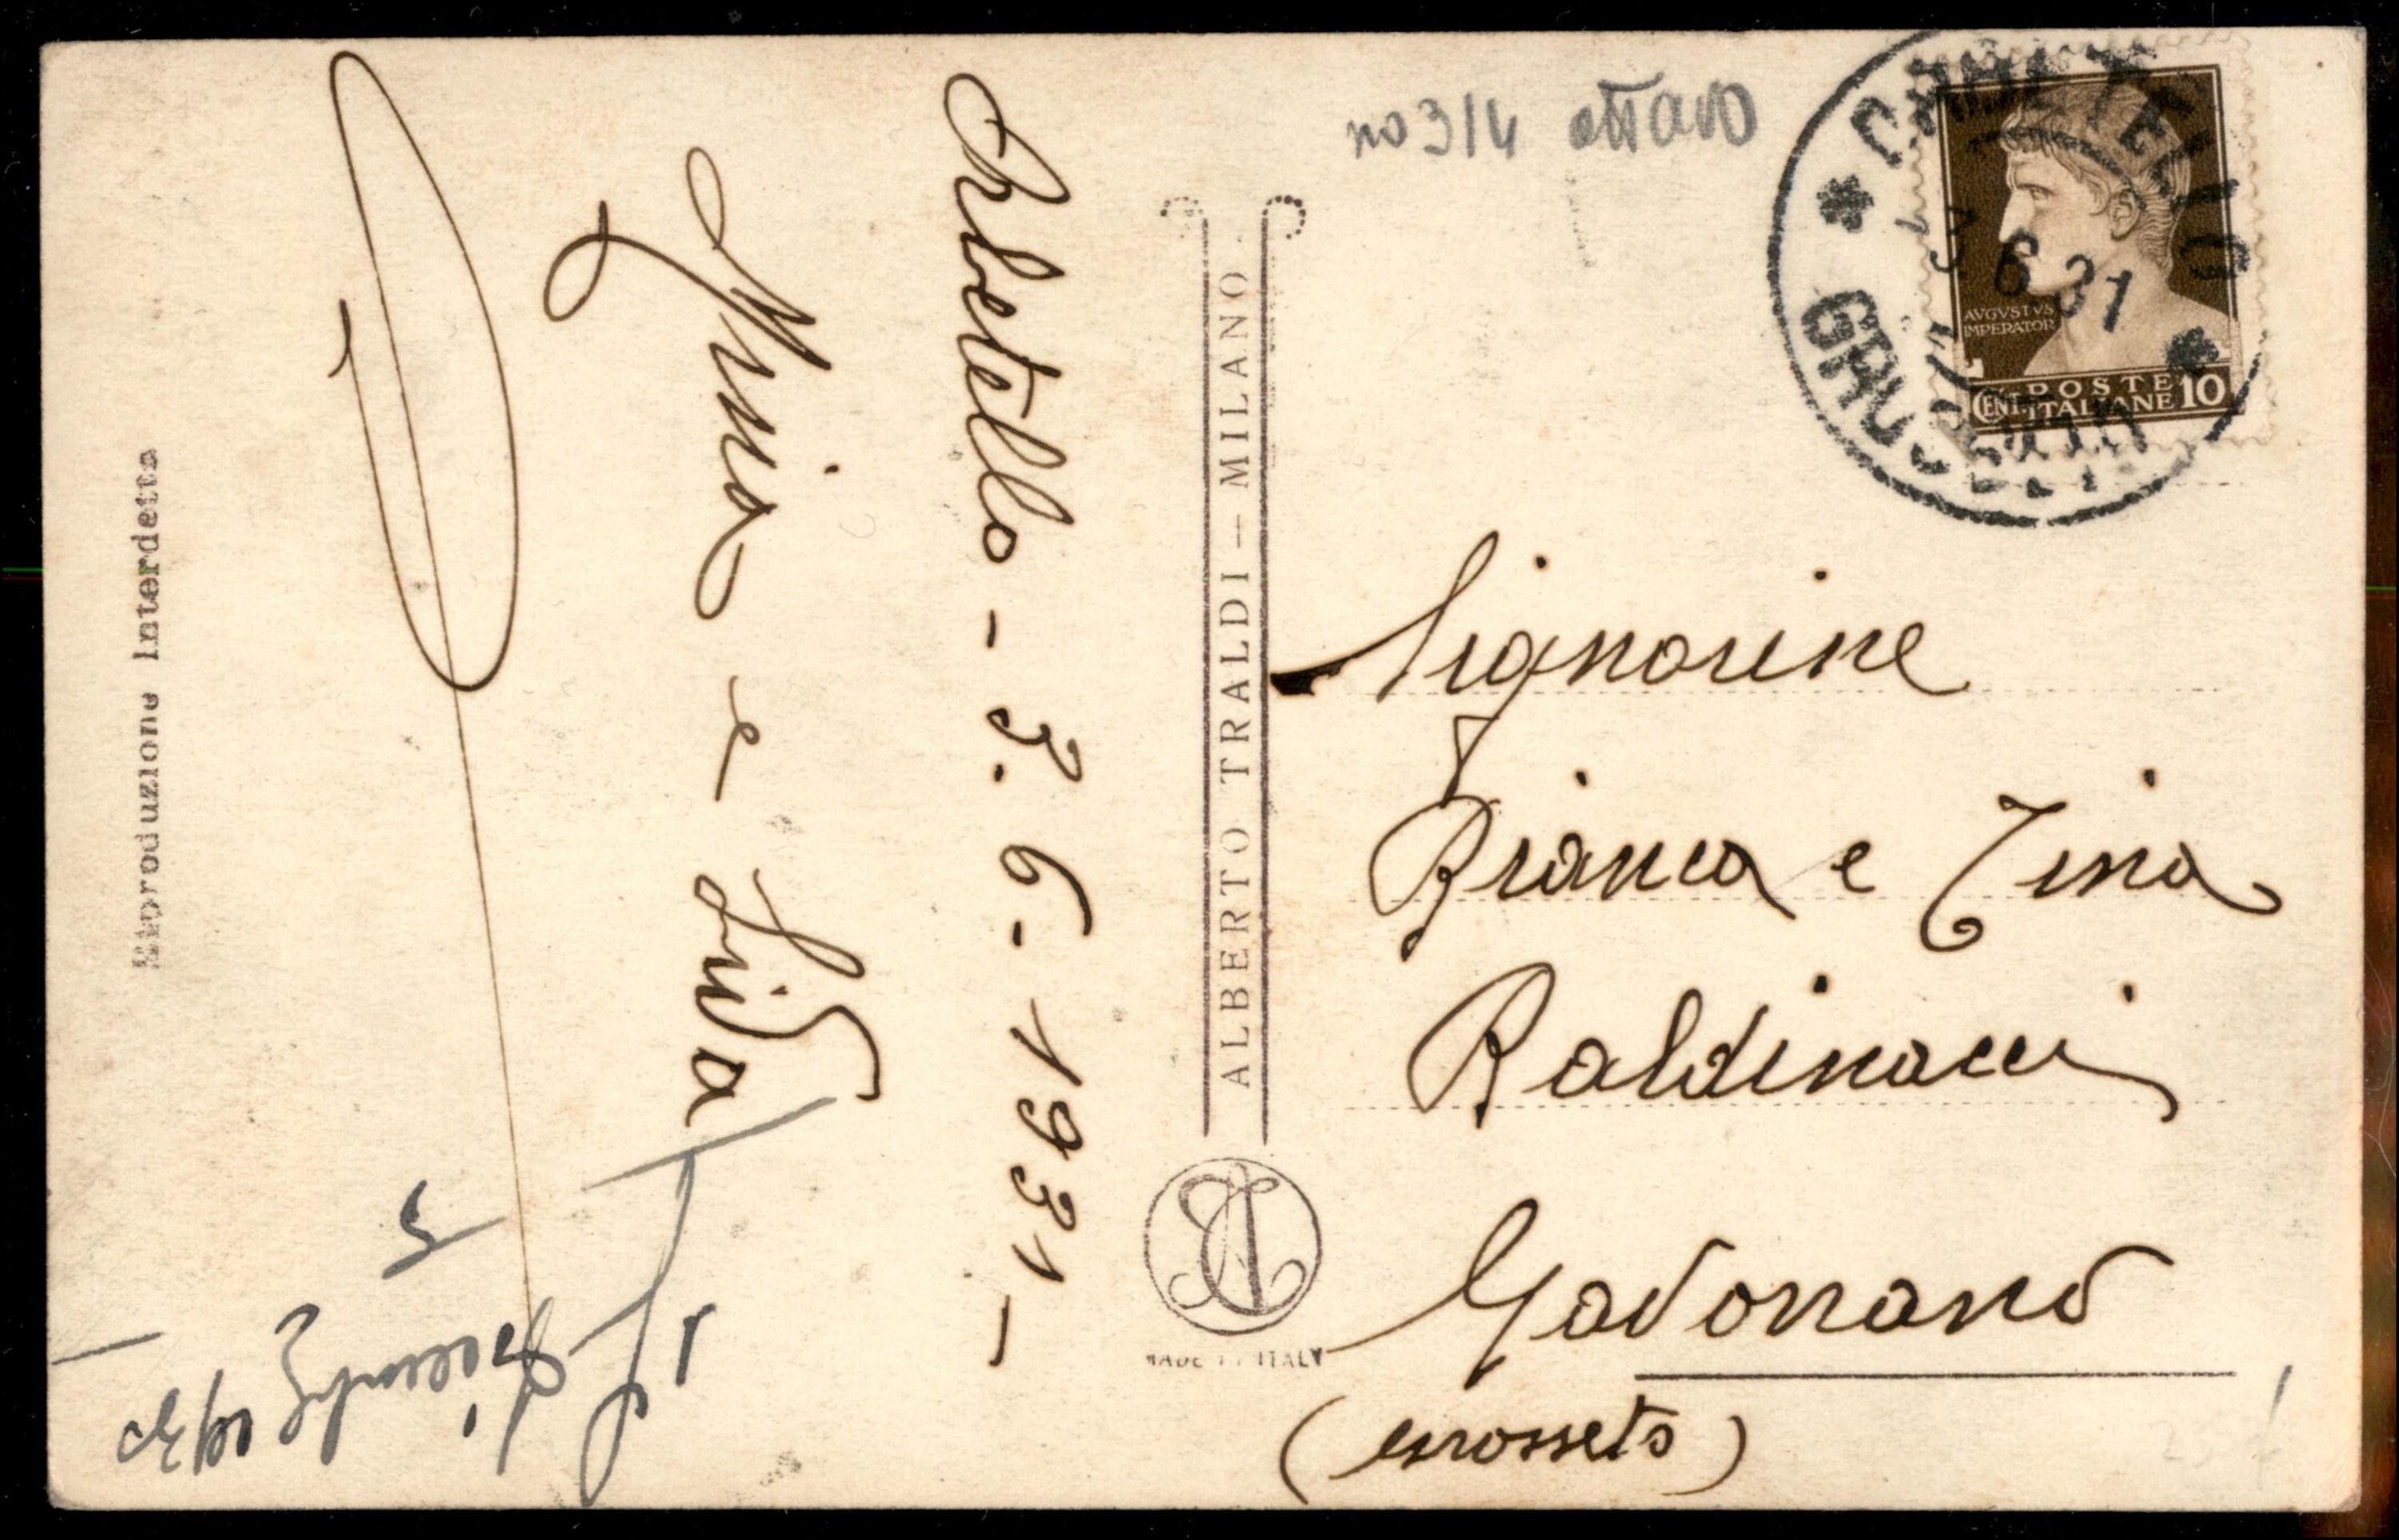 Orbetello - 3. 6 - 1931 -
Annia e Lida
Riproduzione Interdetta
ALBERTO TRALDI — MILANO.
MADE IN ITALY
no 314 ottavo
6 31
AVGVSTVS
IMPERATOR
CENT. POSTE 10
ITALIANE
Signorine
Bianca e Tina
Baldinacci
Gavorrano
(Grosseto)